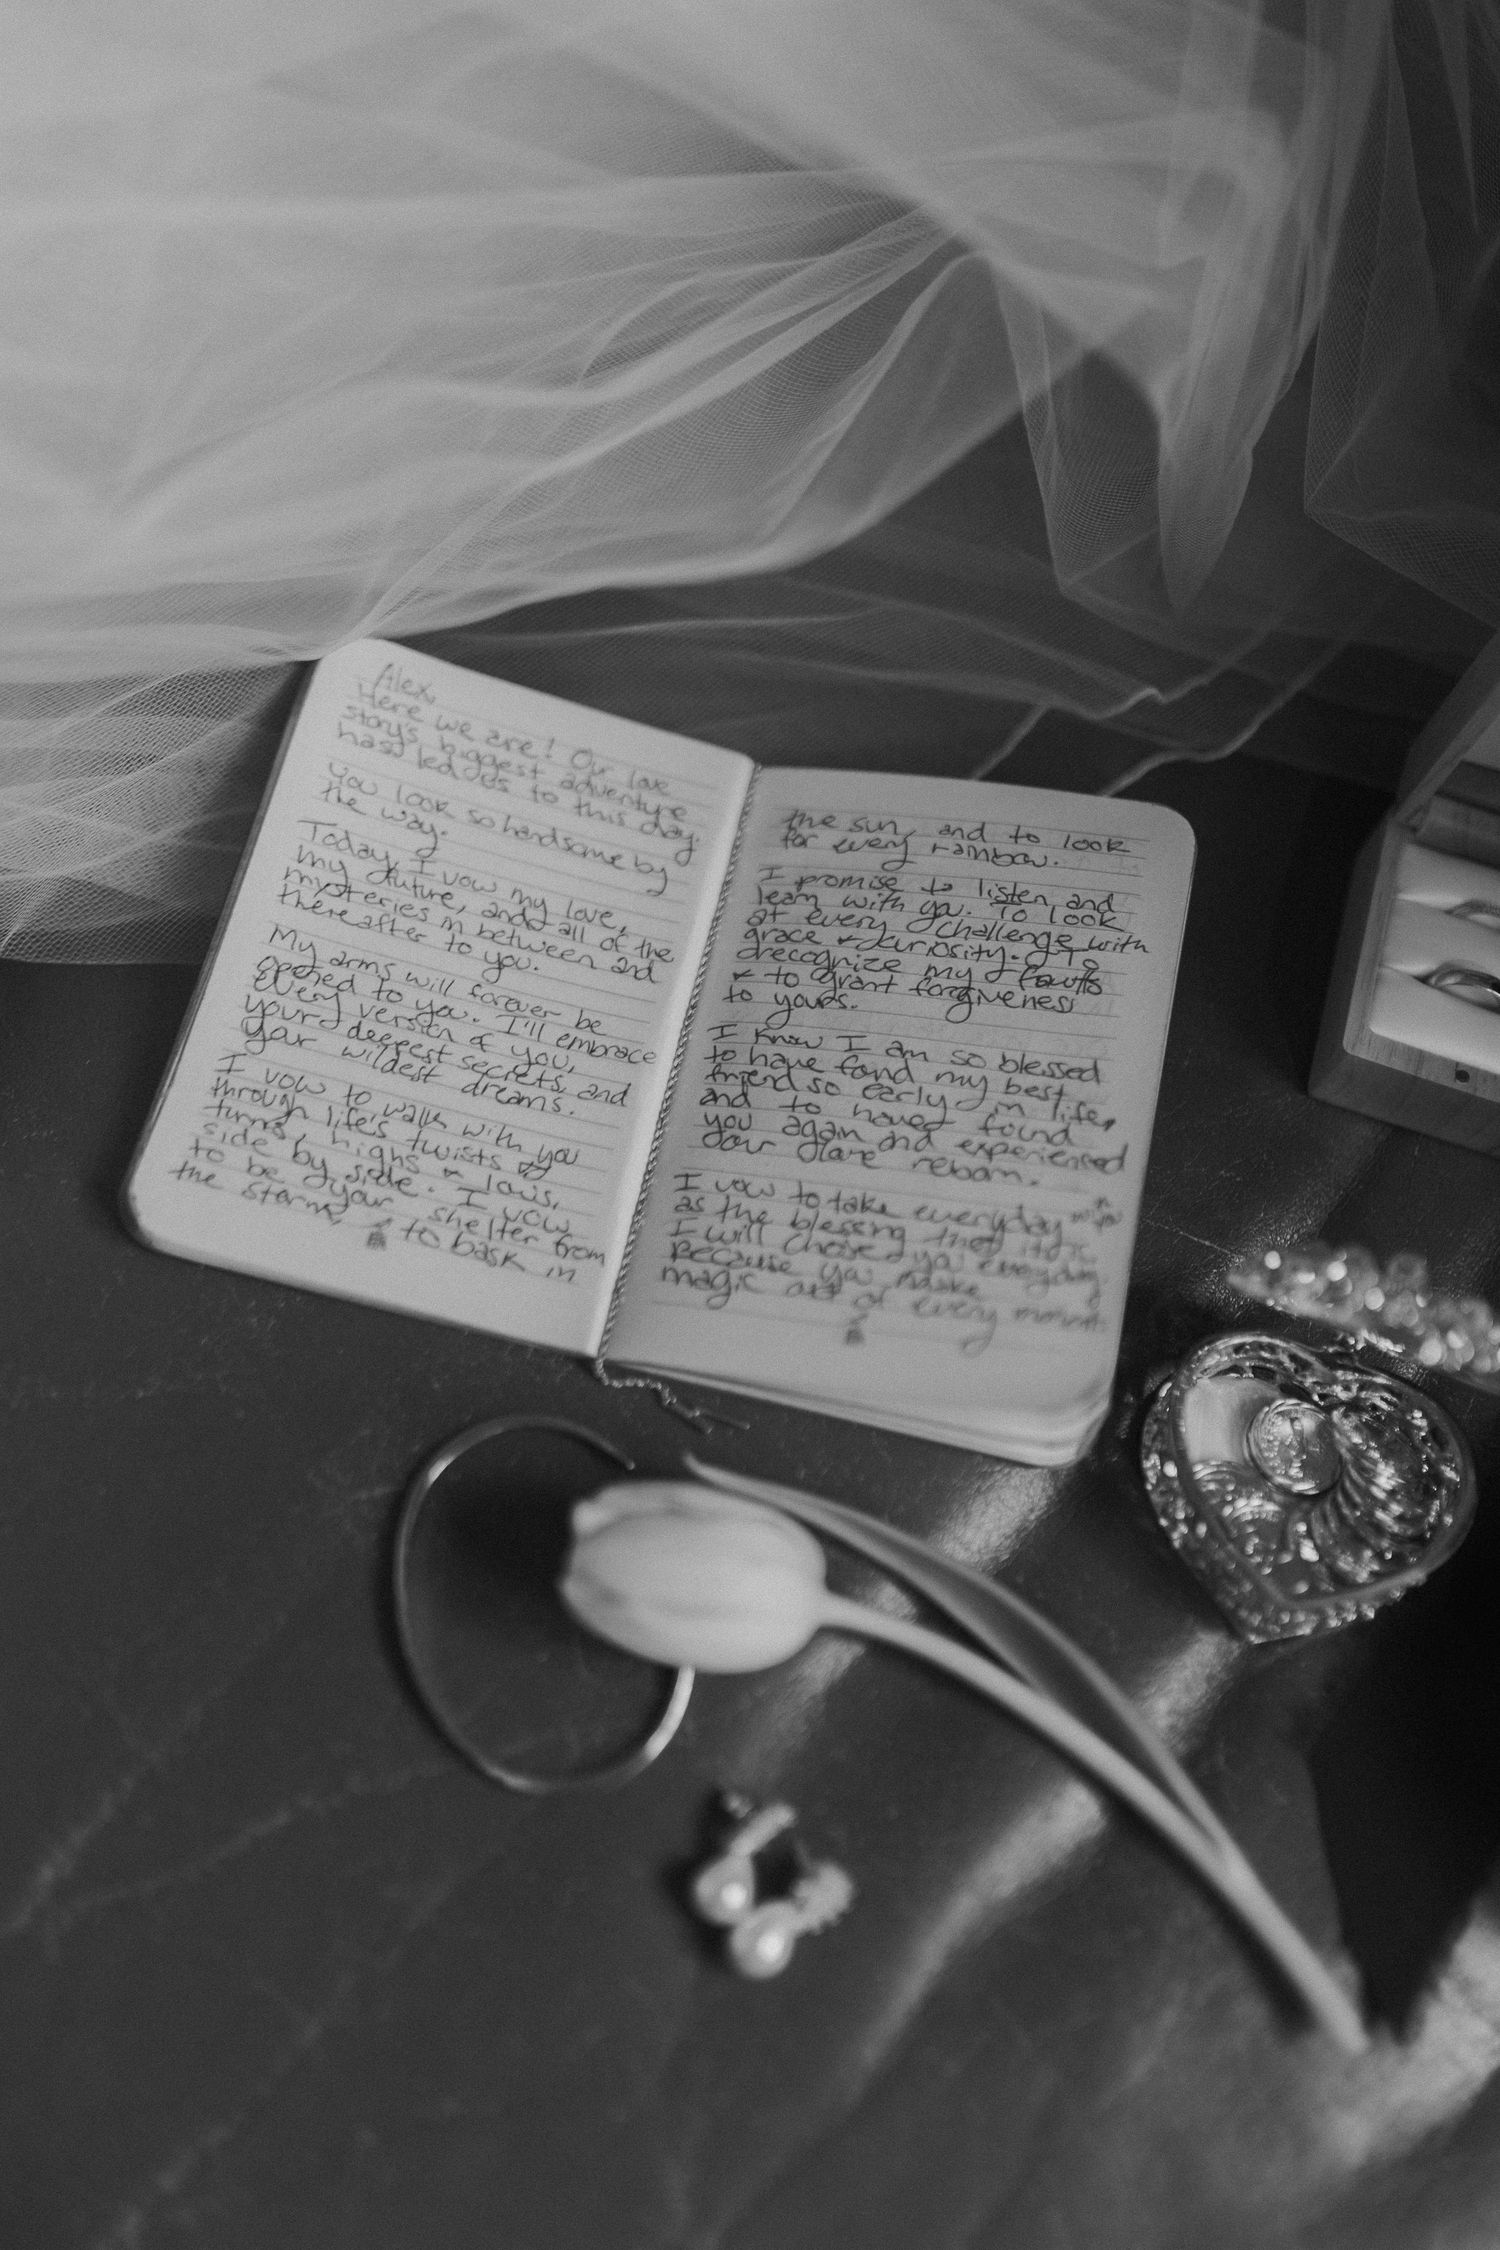 Alex,
Here we are! Our love
story's biggest adventure
has led us to this day.
You look so handsome by
the way.
Today, I vow my love,
my future, and all of the
mysteries in between and
thereafter to you.
My arms will forever be
opened to you. I'll embrace
every version of you,
your deepest secrets, and
your wildest dreams.
I vow to walk with you
through life's twists &
turns, highs & lows,
side by side. I vow
to be your shelter from
the storm, to bask in
the sun, and to look
for every rainbow.
I promise to listen, and
learn with you. To look
at every challenge with
grace & curiosity. To
recognize my faults
& to grant forgiveness
to yours.
I know I am so blessed
to have found my best
friend so early in life,
and to have found
you again and experienced
our love reborn.
I vow to take everyday with you
as the blessing that it is.
I will chose you everyday,
because you make
magic out of every moment.